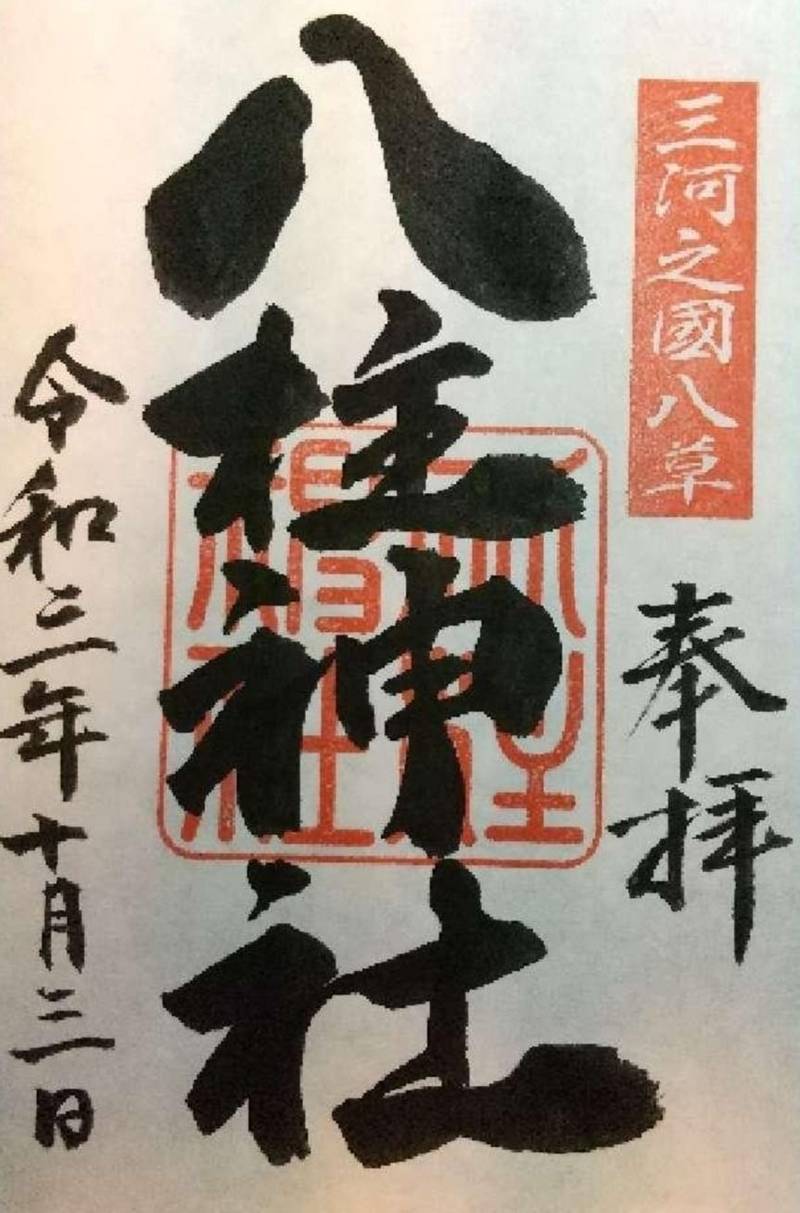 三河之國八草
奉拝
八柱神社
八柱神社
令和三年十月三日